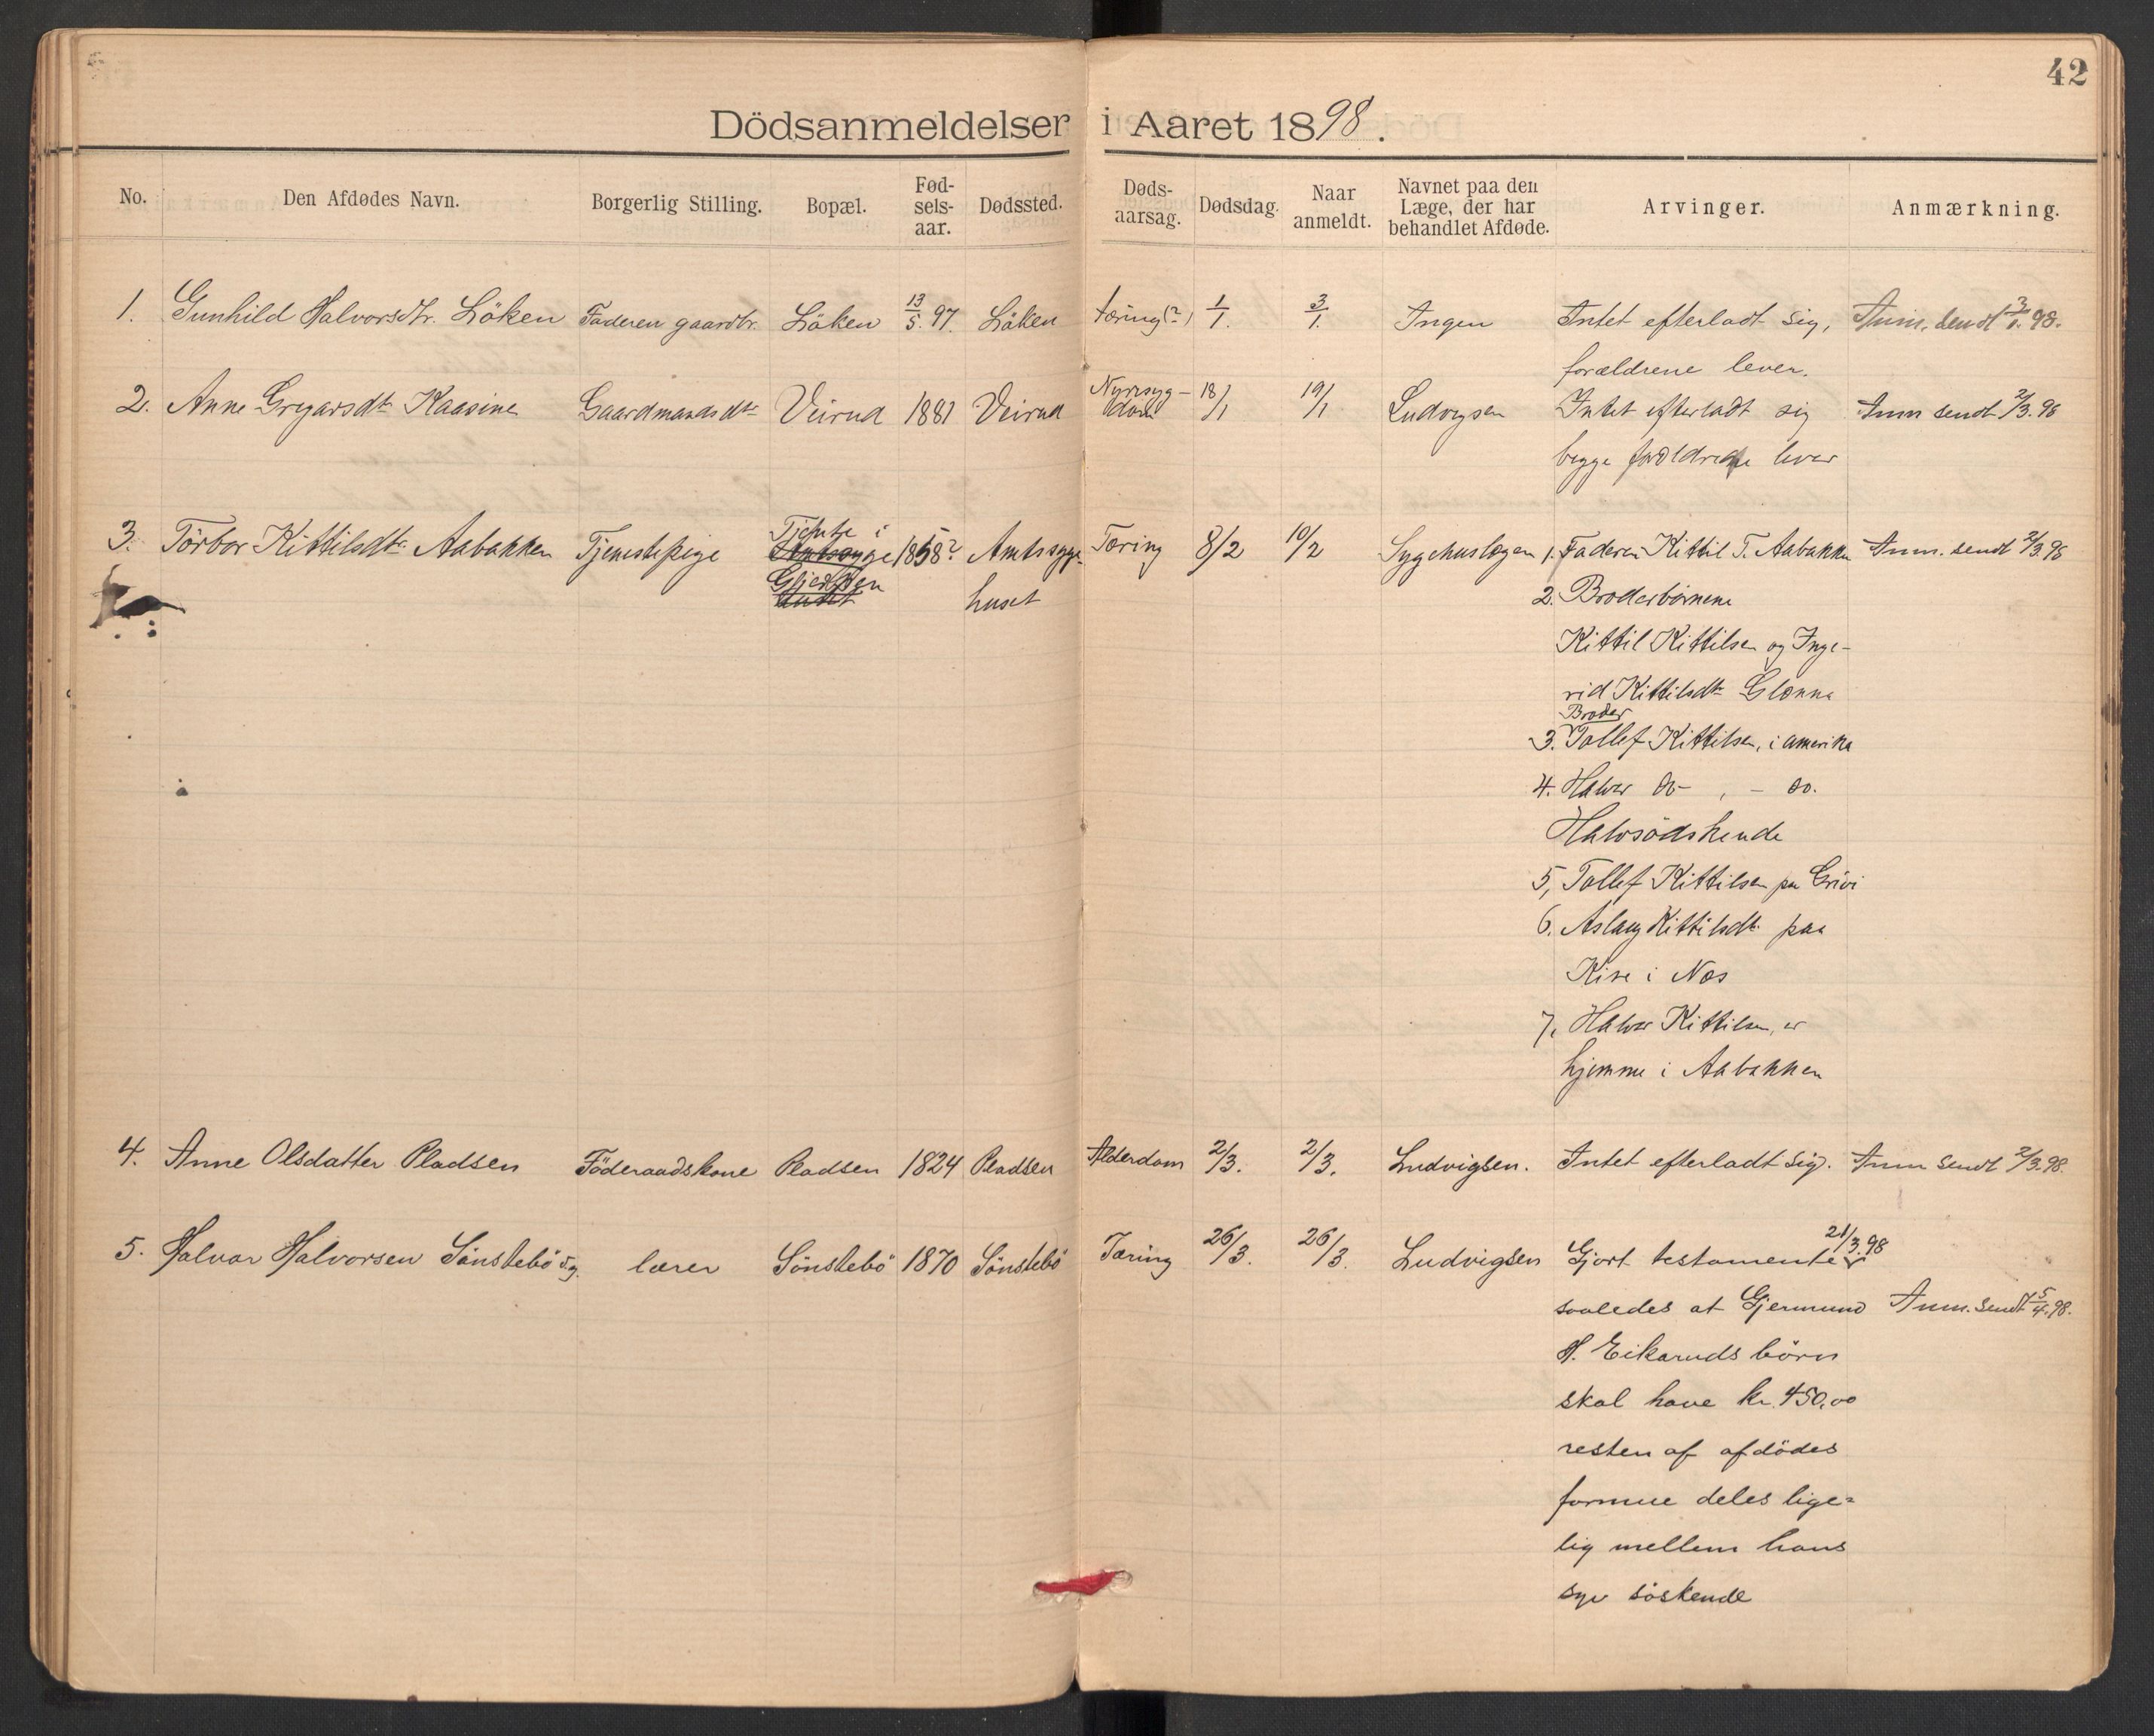 42
Dödsanmeldelser i Aaret 1898.
No. Den Afdødes Navn. Borgerlig Stilling. Bopæl. Fød-sels-aar. Dødssted. Døds-aarsag. Dødsdag. Naar anmeldt. Navnet paa den Læge, der har behandlet Afdøde. Arvinger. Anmærkning.
1. Gunhild Halvorsdtr. Löken Faderen gaardbr. Löken 13/5. 97. Löken tæring(?) 1/1. 3/1. Ingen Intet efterladt sig, Anm. sendt 3/1. 98.
forældrene lever.
2. Anne Gregarsdtr Kaasine Gaardmandsdtr Veirud 1881 Veirud Nyresyg- 18/1 19/1 Ludvigsen Intet efterladt sig Anm sendt 2/3. 98
dom
begge forældrene lever
Tjente i
3. Törbor Kittilsdtr Aabakken Tjenestepige Amtssyge 1858? Amtssyge- Tæring 8/2 10/2 Sygehuslægen 1. Faderen Kittil T. Aabakken Anm. sendt 2/3. 98
huset huset 2. Broderbörnene
Kittil Kittilsen og Inge-
rid Kittilsdtr Glenna
Broder
3. Tollef Kittilsen, i amerika
4. Halvor do - , - do.
Halvsödskende
5, Tollef Kittilsen paa Grivi
6. Aslaug Kittilsdtr paa
i Nes
7, Halvor Kittilsen, er
hjemme i Aabakken
4. Anne Olsdatter Pladsen Föderaadskone Pladsen 1824 Pladsen Alderdom 2/3. 2/3. Ludvigsen. Intet efterladt sig. Anm sendt 2/3. 98.
21/3. 98
5. Halvor Halvorsen Sönstebö lærer Sönstebö 1870 Sönstebö Tæring 26/3. 26/3. Ludvigsen Gjort testamente
saaledes at Gjermund Anm. sendt 5/4. 98.
H. Eikaruds börn
skal have kr. 450,00
resten af afdödes
formue deles lige=
lig mellem hans
syv söskende